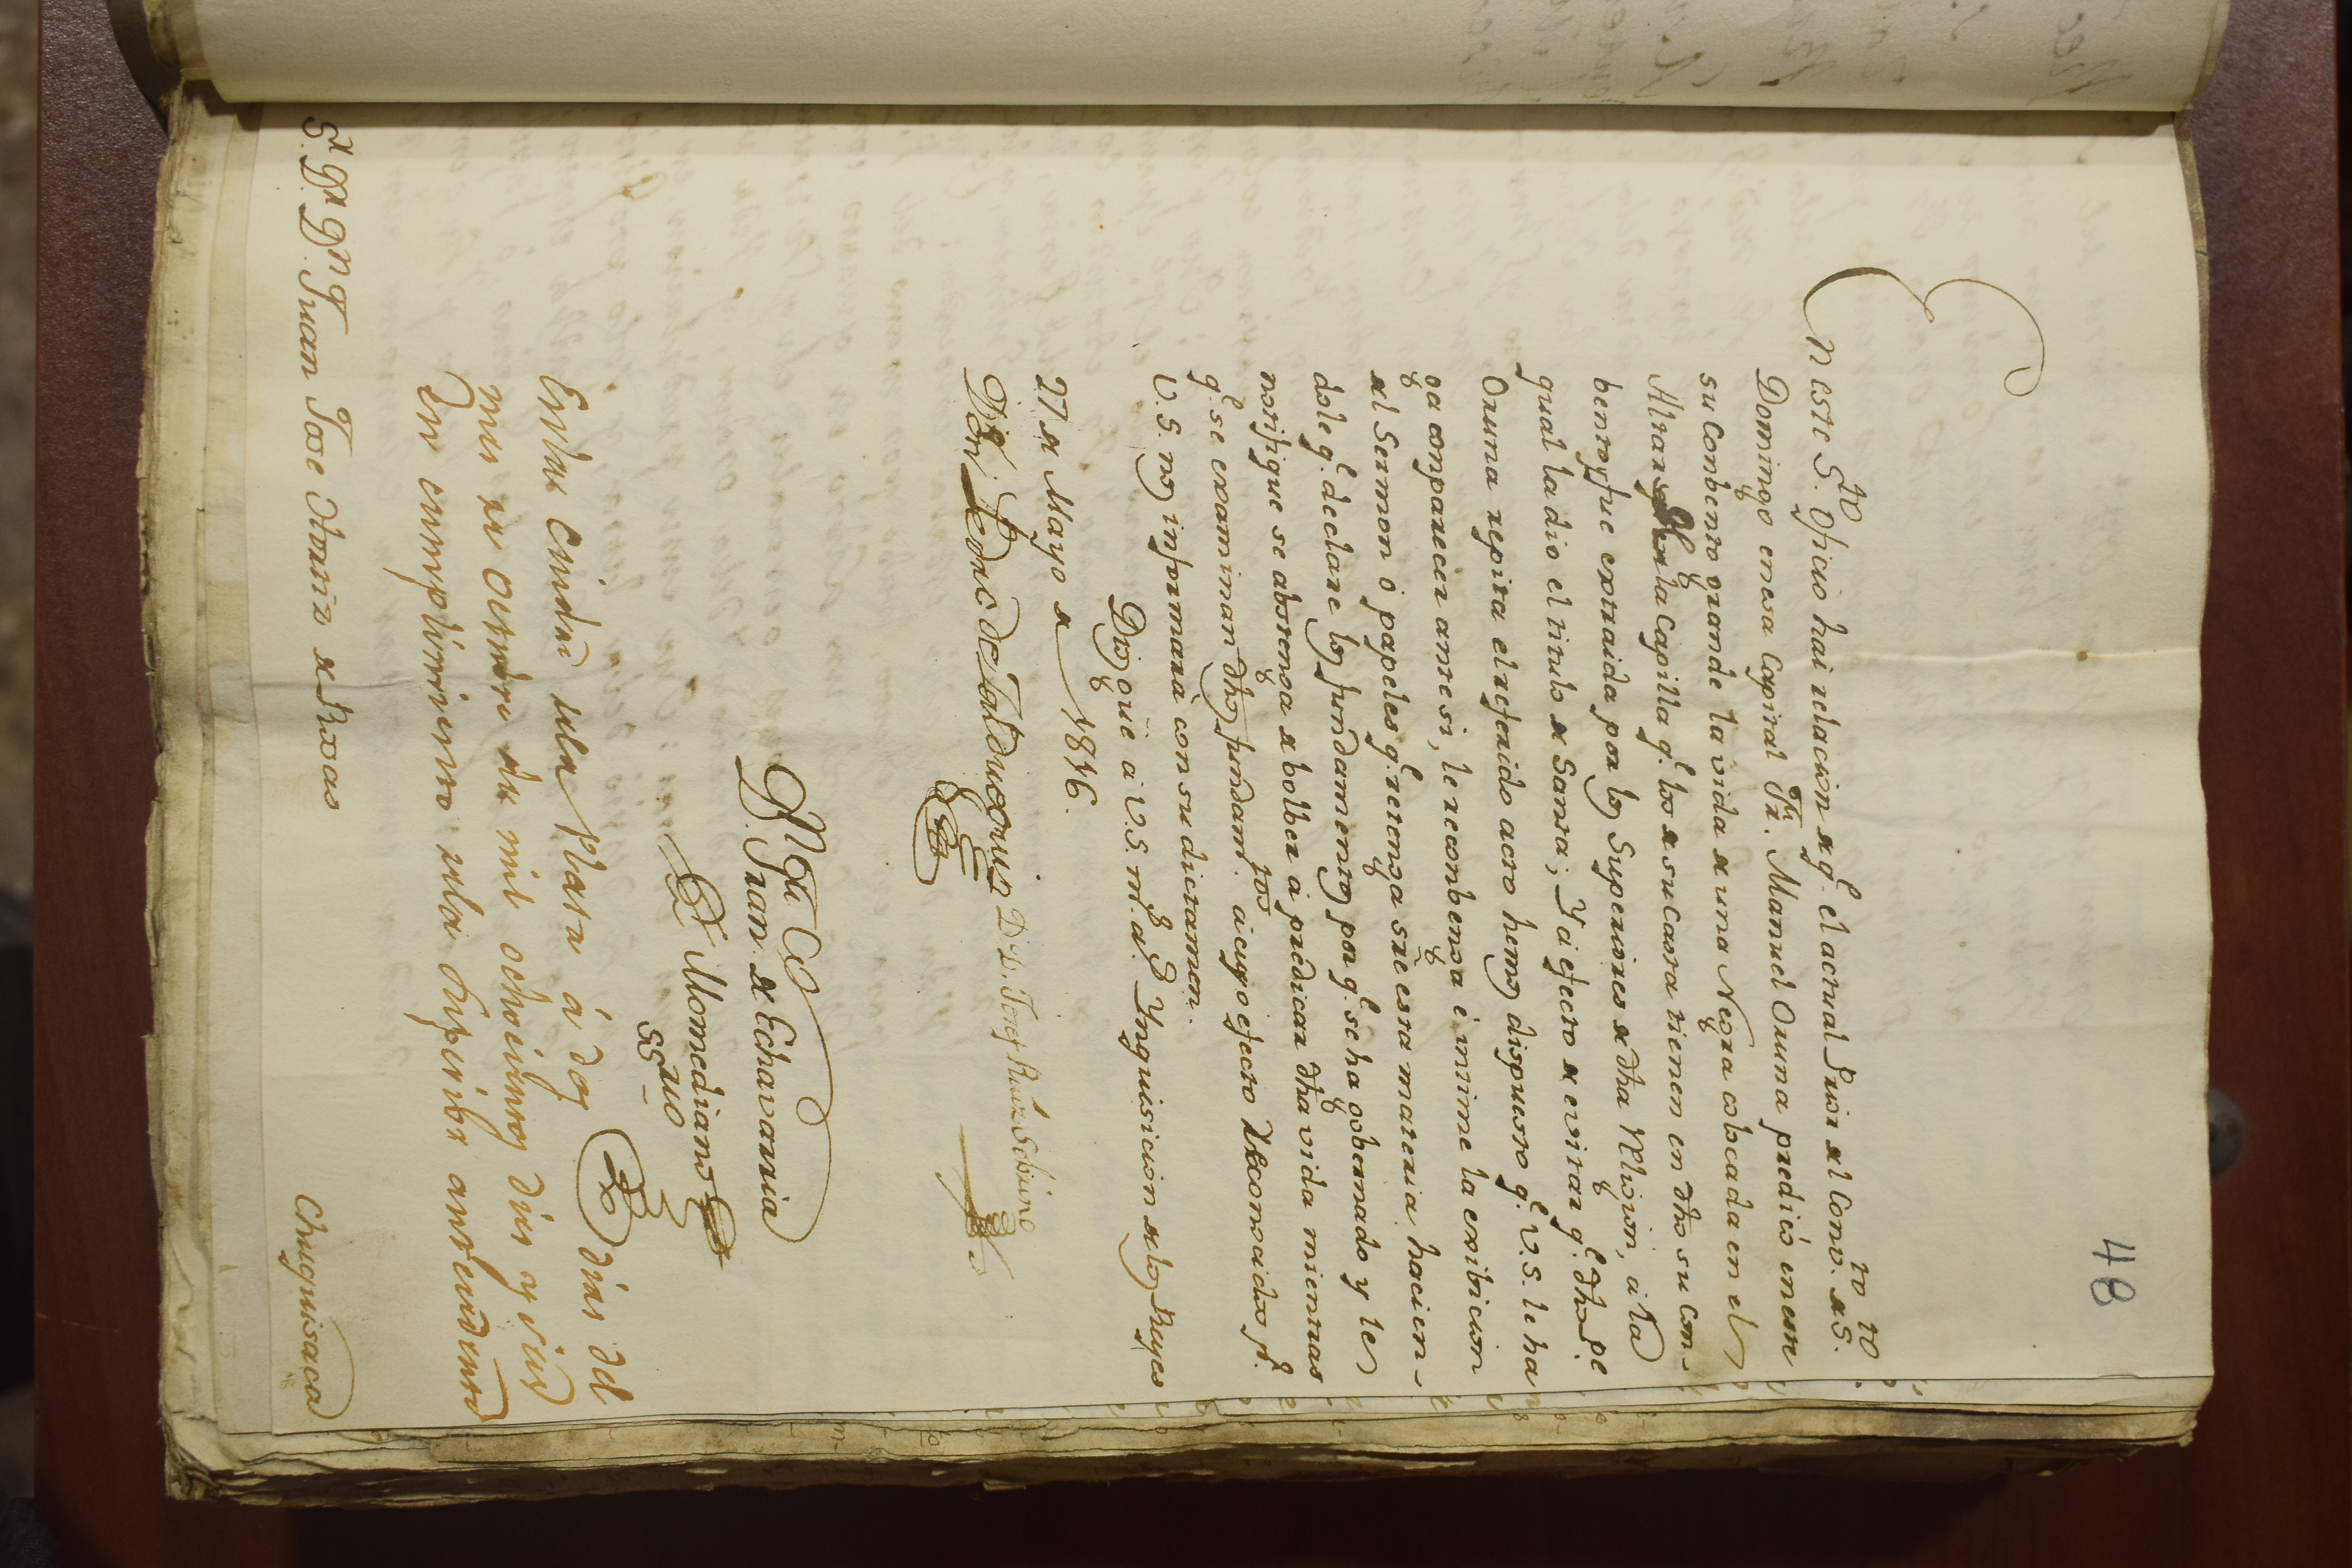 48
En este S.to Oficio hai relacion de q.e el actual Prior del Conv.to de S.to
Domingo en esa Capital Fr. Manuel Oruna predicó en un
su Conbento grande la vida de una Negra colocada en el
Altar de la Capilla q.e los de su Casta tienen en dho su Con-
bento, y fue extraida por los Superiores de dha Relixion, a la
qual la dio el titulo de Santa; Y á efecto de evitar q.e dho P.e
Oruna repita el referido acto hemos dispuesto q.e V.S. le ha
ga comparecer ante si, le reconbenga é intime la exibicion
del Sermon ó papeles q.e retenga sre esta materia, hacien-
dole q.e declare los fundamentos por q.e se ha gobernado y le
notifique se abstenga de bolber á predicar dha vida mientras
q.e se examinan dhos fundam.tos a cuyo efecto reconocidos p.r
V.S. nos informará con su dictamen.
Dios gûe a V.S. m.s a.s Ynquisicion de los Reyes
27 de Mayo de 1816.
D.or Pedro de Zalduegui D.D. José Ruiz Sobrino
D. Juan de Echavarria
Momediano
SS.rio
En la Ciudad de la Plata á dos dias del
mes de Octubre de mil ochocientos dies y seis
En cumplimiento de la Superior antecedente
S.r D.r D.n Juan Jose Ortiz de Rosas
Chuquisaca